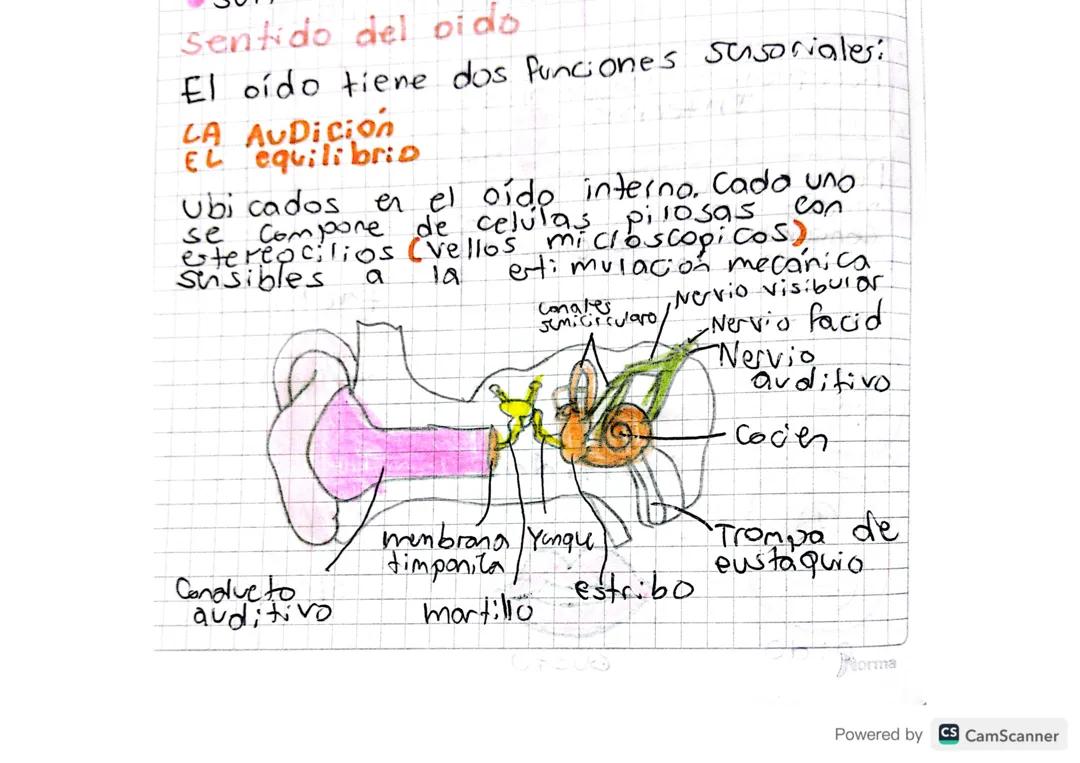 sentido del oido
El oído tiene dos funciones sensoriales:
LA AUDiCión
EL equilibrio
Ubicados en el oído interno. Cada uno
se compone de celúlas pilosas con
estereocilios (vellos microscopicos)
sensibles a la estimulación mecánica
canales
semicircularo
Nervio visibular
Nervio facid
Nervio
auditivo
Coclen
Trompa de
eustaquio
membrana
timponita
Yunque
estribo
martillo
Conducto
auditivo
Norma
Powered by CS CamScanner